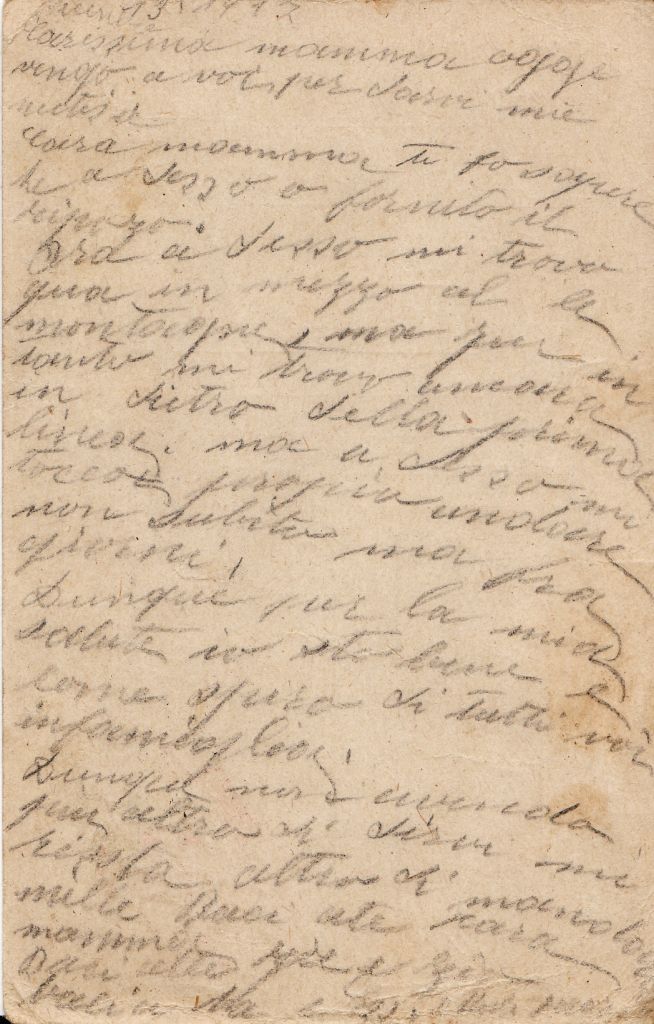 13 - 1917
Carissima mamma oggi
vengo a voi per darvi mie
notisie
Cara mamma ti fo sapere
he a desso o fornito il
riposo.
Ora a desso mi trovo
qua in mezzo al le
montagne, ma per in
tanto mi trovo ancora
in dietro della prima
linea. ma a desso mi
tocca propia andare
non subito ma fra
giorni,
Dunque per la mia
salute io sto bene e
come spero di tutti voi
infamiglia,
Dunque non avendo
piu altro di dirvi mi
resta altro di mandar
mille Baci ate cara
mamma zie e zio
Baci